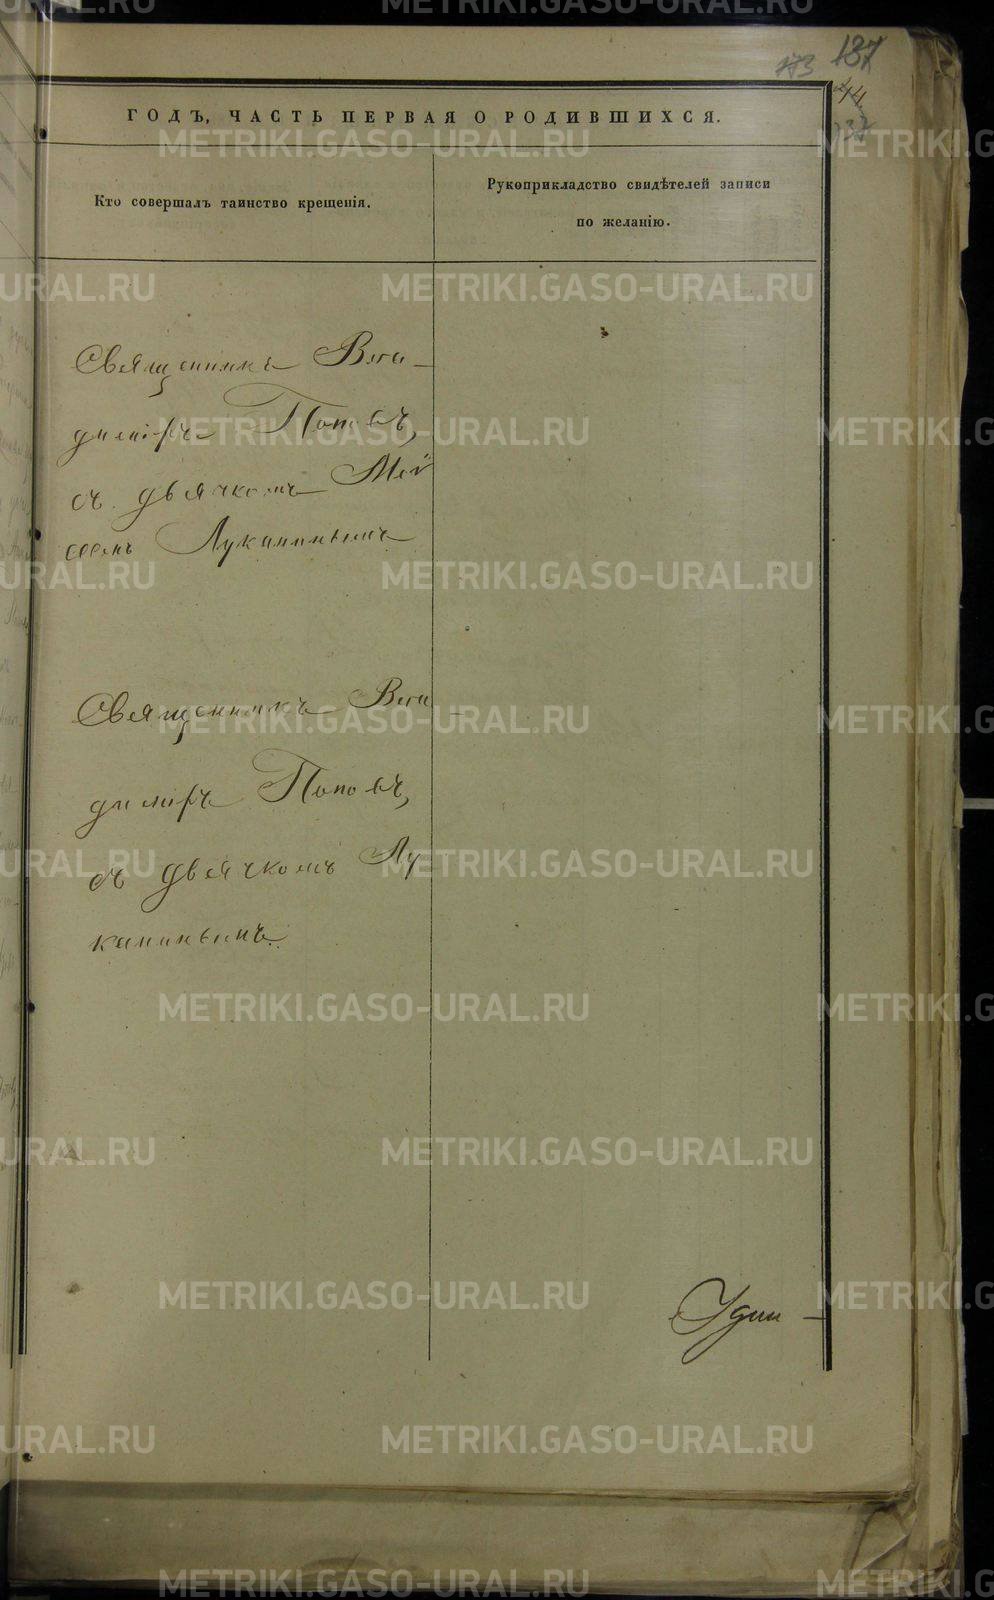 173 137
14
137
ГОДЪ, ЧАСТЬ ПЕРВАЯ О РОДИВШИХСЯ.
Кто совершалъ таинство крещенія.
Рукоприкладство свидѣтелей записи
по желанію.
Священникъ Вла-
диміръ Поповъ,
съ дьячкомъ Мой
сеемъ Луканинымъ
Священникъ Вла-
димиръ Поповъ,
съ дьячкомъ Лу
канинымъ.
METRIKI.GASO-URAL.RU